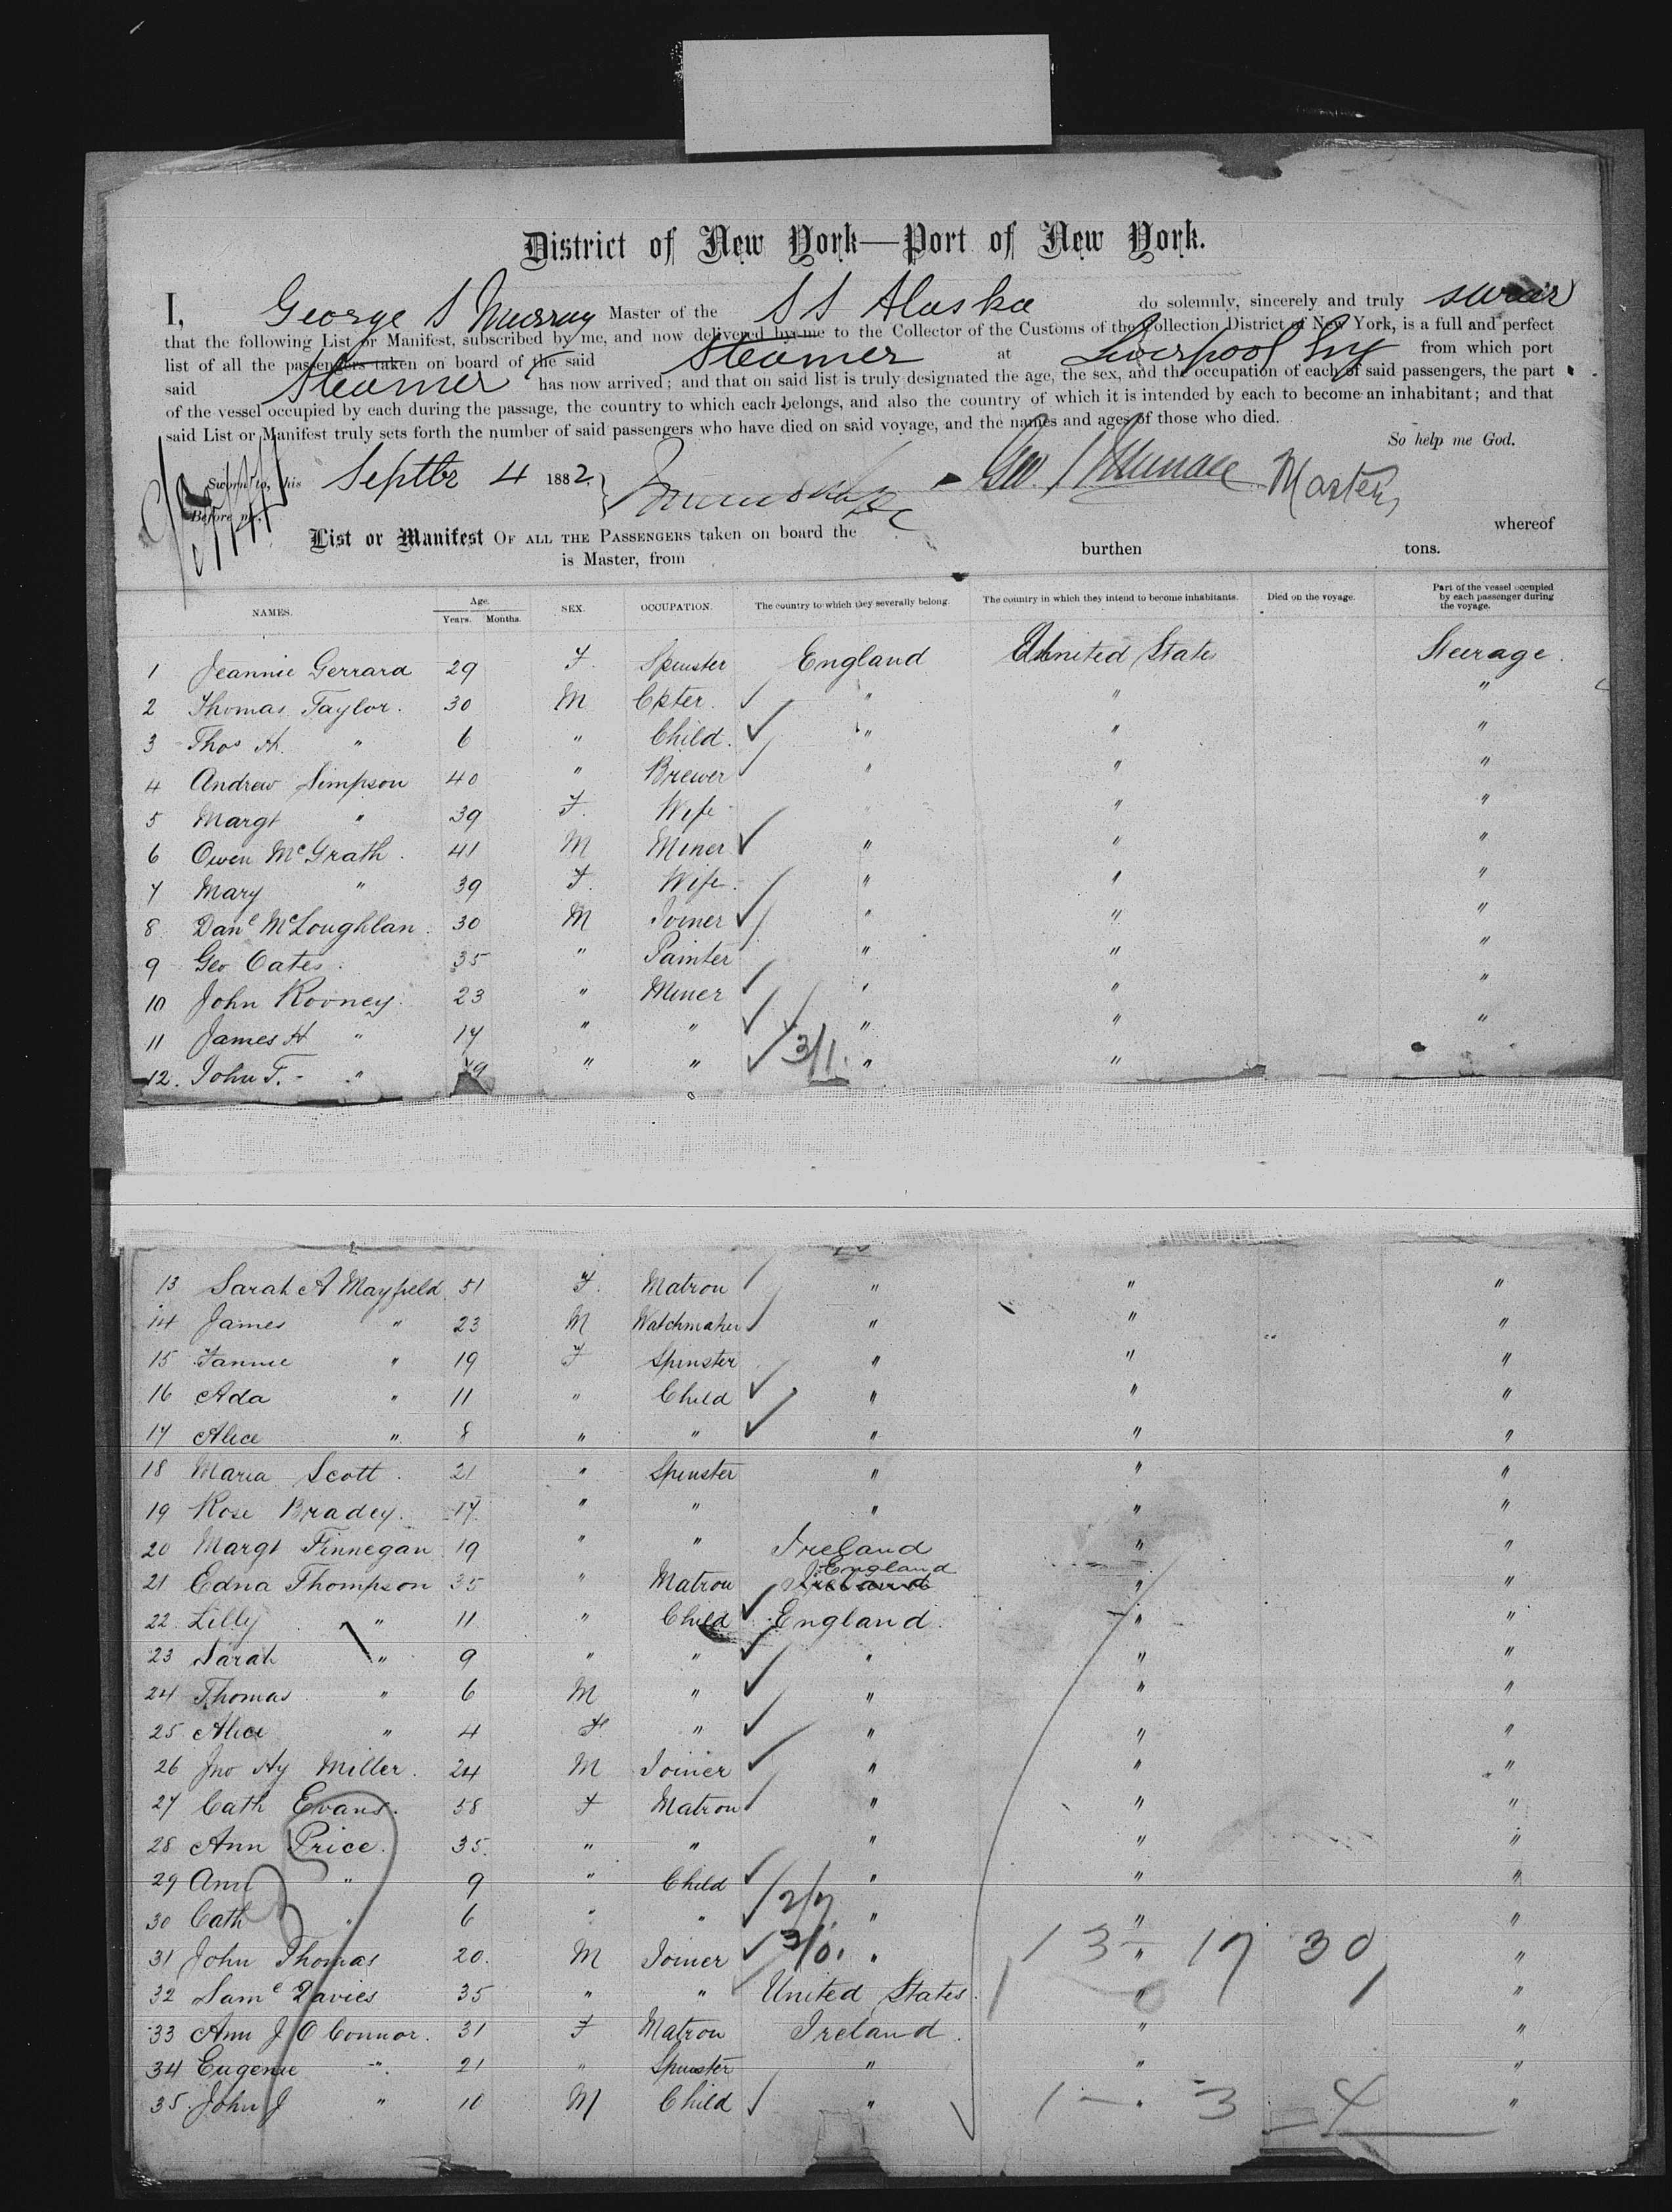 District of New York—Port of New York.
I, George S Murray Master of the S S Alaska do solemnly, sincerely and truly swear
that the following List or Manifest, subscribed by me, and now delivered by me to the Collector of the Customs of the Collection District of New York, is a full and perfect
list of all the passengers taken on board of the said Steamer at Liverpool from which port
said Steamer has now arrived; and that on said list is truly designated the age, the sex, and the occupation of each of said passengers, the part
of the vessel occupied by each during the passage, the country to which each belongs, and also the country of which it is intended by each to become an inhabitant; and that
said List or Manifest truly sets forth the number of said passengers who have died on said voyage, and the names and ages of those who died.
So help me God.
Sworn to, this Septbr 4 1882. Master
Before me,
List or Manifest OF ALL THE PASSENGERS taken on board the whereof
is Master, from burthen tons.
NAMES. Age. Years. Months. SEX. OCCUPATION. The country to which they severally belong. The country in which they intend to become inhabitants. Died on the voyage. Part of the vessel occupied by each passenger during the voyage.
1 Jeannie Gerrard 29 F. Spinster England United States Steerage.
2 Thomas Taylor. 30 M " " "
3 Thos H. " 6 " Child. " " "
4 Andrew Simpson 40 " Brewer " " "
5 Margt " 39 F. Wife " " "
6 Owen McGrath. 41 M Miner " " "
7 Mary " 39 F. Wife. " " "
8 Danl McLoughlan. 30 M Joiner " " "
9 Geo Oates. 35 " Painter " " "
10 John Rooney. 23 " Miner " " "
11 James H " 17 " " " " "
12. John T. " 19 " " 3/1. " "
13 Sarah A Mayfield 51 F. Matron " " "
14 James " 23 M Watchmaker " " "
15 Fannie " 19 F Spinster " " "
16 Ada " 11 " Child " " "
17 Alice " 8 " " " " "
18 Maria Scott. 21 " Spinster " " "
19 Rose Bradey. 17 " " " " "
20 Margt Finnegan 19 " " Ireland " "
21 Edna Thompson 35 " Matron Ireland England " "
22 Lilly " 11 " Child England. " "
23 Sarah " 9 " " " " "
24 Thomas " 6 M " " " "
25 Alice " 4 F " " " "
26 Jno Hy Miller. 24 M Joiner " " "
27 Cath Evans. 58 F Matron " " "
28 Ann Price. 35. " " " " "
29 Ann " 9 " Child " " "
30 Cath " 6 " " 2/7. " " "
31 John Thomas 20. M Joiner 3/0. " " " 13 - 17 30
32 Saml Davies 35 " " United States. " "
33 Ann J O'Connor. 31 F Matron Ireland. " "
34 Eugenie " 21 " Spinster " " "
35. John J " 10 M Child " " " 1 - 3 - 4